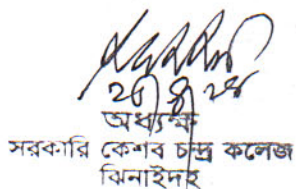 অধ্যক্ষ
সরকারি কেশব চন্দ্র কলেজ
ঝিনাইদহ